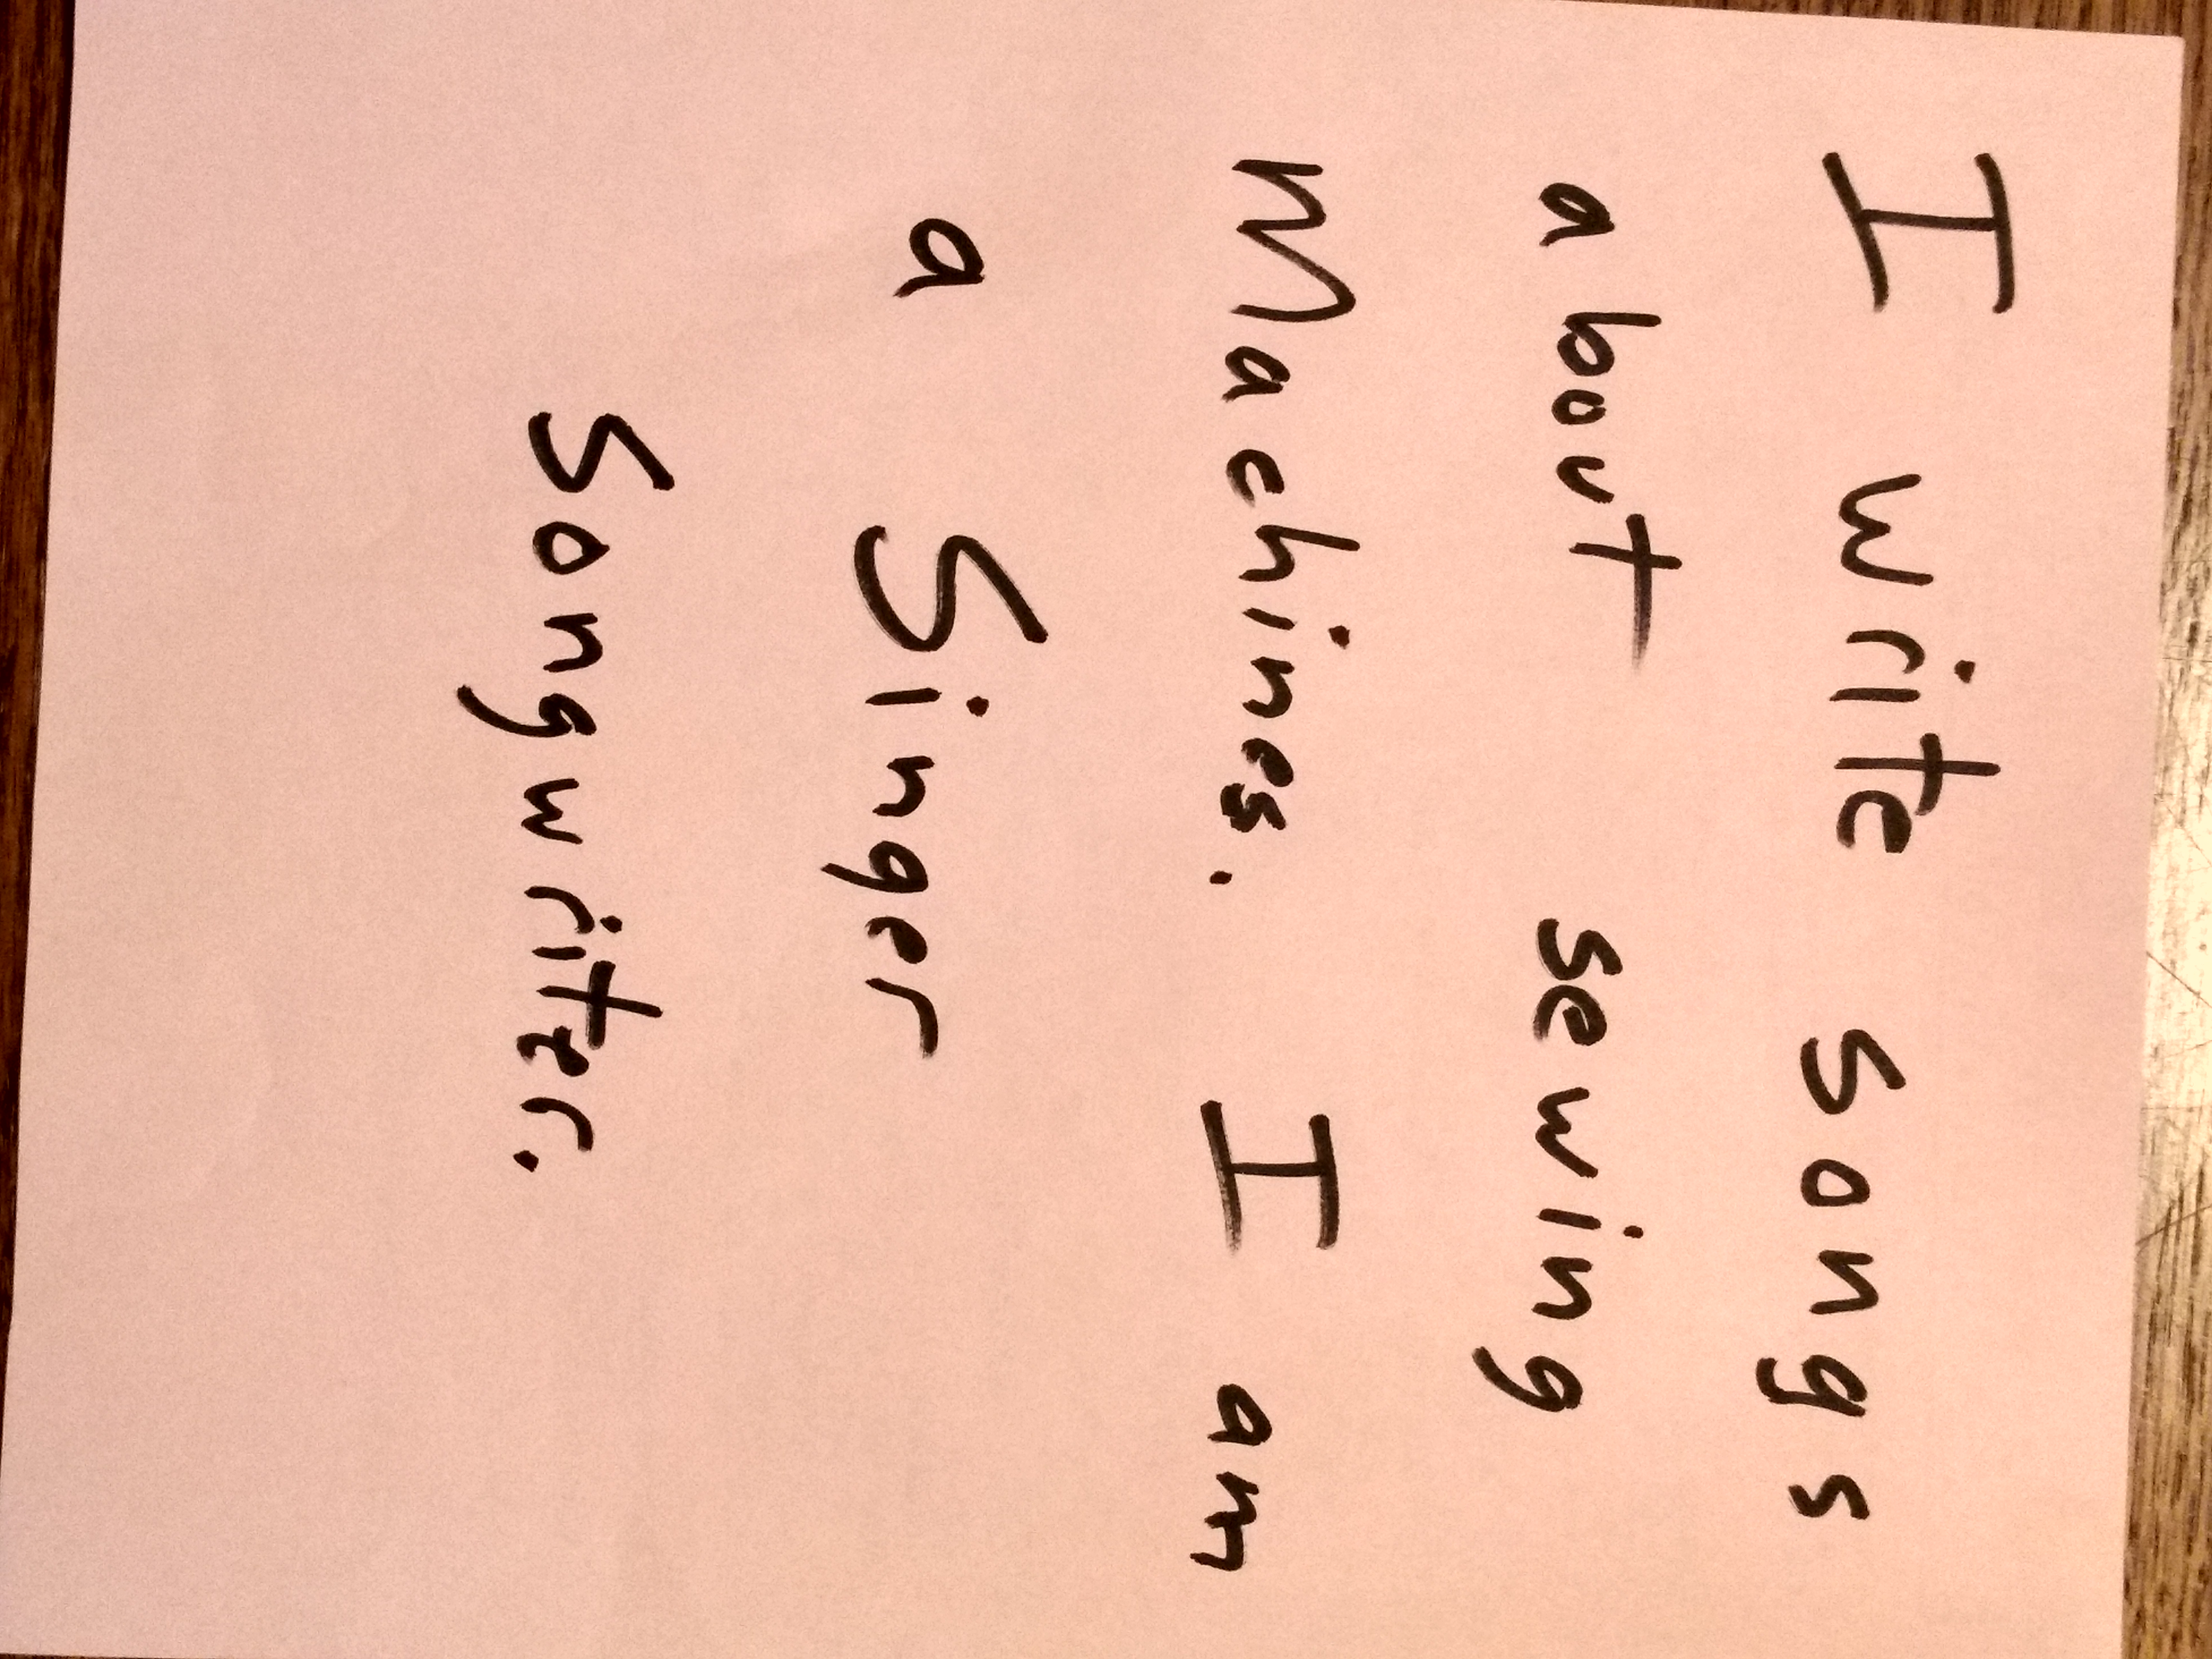 I write songs
about sewing
Machines. I am
a Singer
Songwriter.